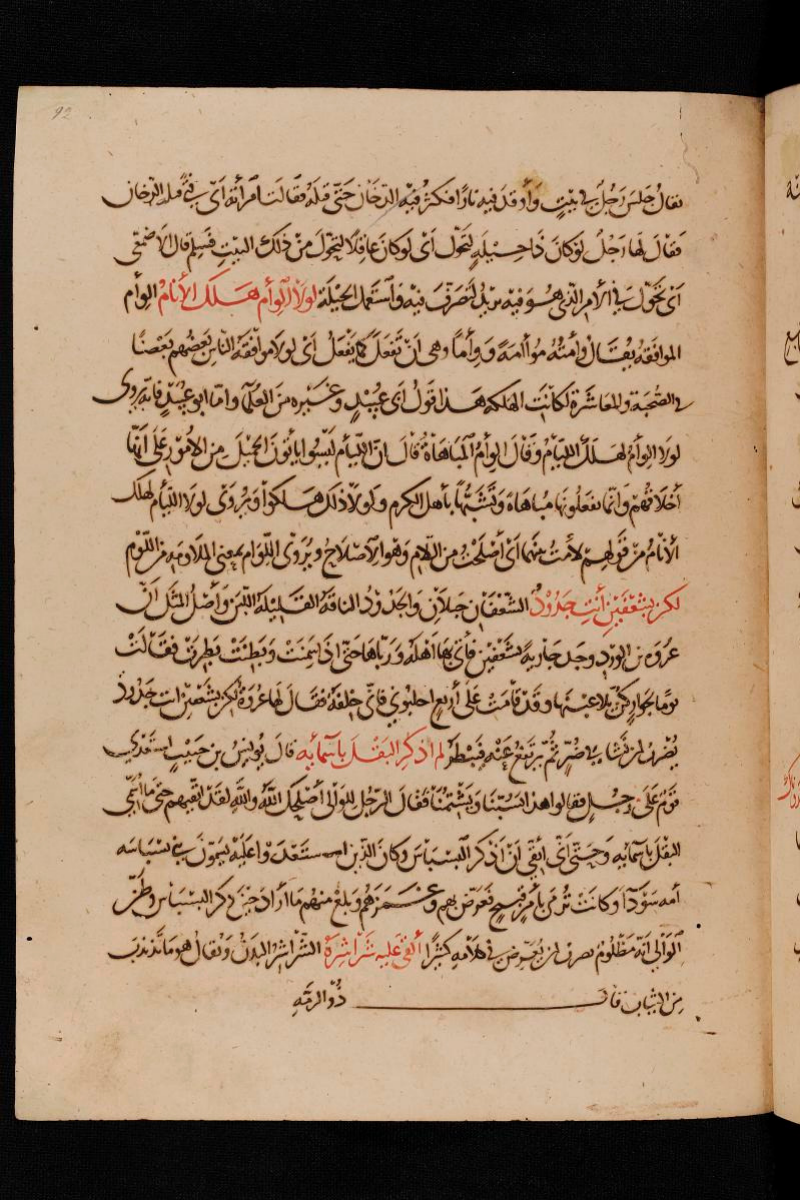 92
يقال جلس رجل في بيت وأوقد فيه نارا فكثر فيه الدخان حتى قتله فقالت امرأته أي فتى قتله الدخان
فقال لها رجل لو كان ذا حيلة لتحول أي لو كان عاقلا لتحول من ذلك البيت فسلم قال الأصمعي
أي تحول في الأمر الذي هو فيه يريد لتصرف فيه واستعمل الحيلة لولا الوأم هلك الأنام الوأم
الموافقة يقال وأمته موأامة ووأما وهي أن تفعل كما يفعل أي لولا موافقة الناس بعضهم بعضا
في الصحبة والمعاشرة لكانت الهلكة هذا قول أبي عبيد وغيره من العلما وأما أبو عبيد فانه يروى
لولا الوأم لهلك الليام وقال الوأم المباهاة قال ان الليام ليسوا يأتون الجميل من الأمور على أنها
أخلاقهم وانما يفعلونها مباهاة وتشبها بأهل الكرم ولولا ذلك هلكوا ويروى لولا الليام لهلك
الأنام من قولهم لأمت بينهما أي أصلحت من اللام وهو الإصلاح ويروى اللوام بمعنى الملاومة من اللوم
لكن بشعفين أنت جدود الشعفان جبلان والجدود الناقة القليلة اللبن وأصل المثل أن
عروة بن الورد وجد جارية بشعفين فأتى بها أهله ورباها حتى إذا سمنت وبطنت بطرت فقالت
يوما لجوار كن يلاعبنها وقد قامت على أربع احلبوني فاني خلفة فقال لها عروة لكن بشعفين انت جدود
يضرب لمن نشا في ضر ثم يرتفع عنه فيبطر لم اذكر البقل بأسمائه قال يونس بن حبيب استعدى
قوم على رجل فقالوا هذا يسبنا ويشتمنا فقال الرجل للوالي أصلحك الله والله لقد اتقيهم حتى ما أسمي
البقل بأسمائه وحتى أني أتقي أن أذكر البسباس وكان الذين استعدوا عليه يسمون بني بسباسه
أمه سودآ وكانت ترمى بأمر قبيح فعرض بهم وغمزهم وبلغ منهم ما أراد حين ذكر البسباس وظن
الوالي انه مظلوم يضرب لمن يعرض في كلامه كثيرا ألقى عليه شراشره الشراشر البدن ويقال هو ما تذبذب
من الثياب قال ذو الرمة